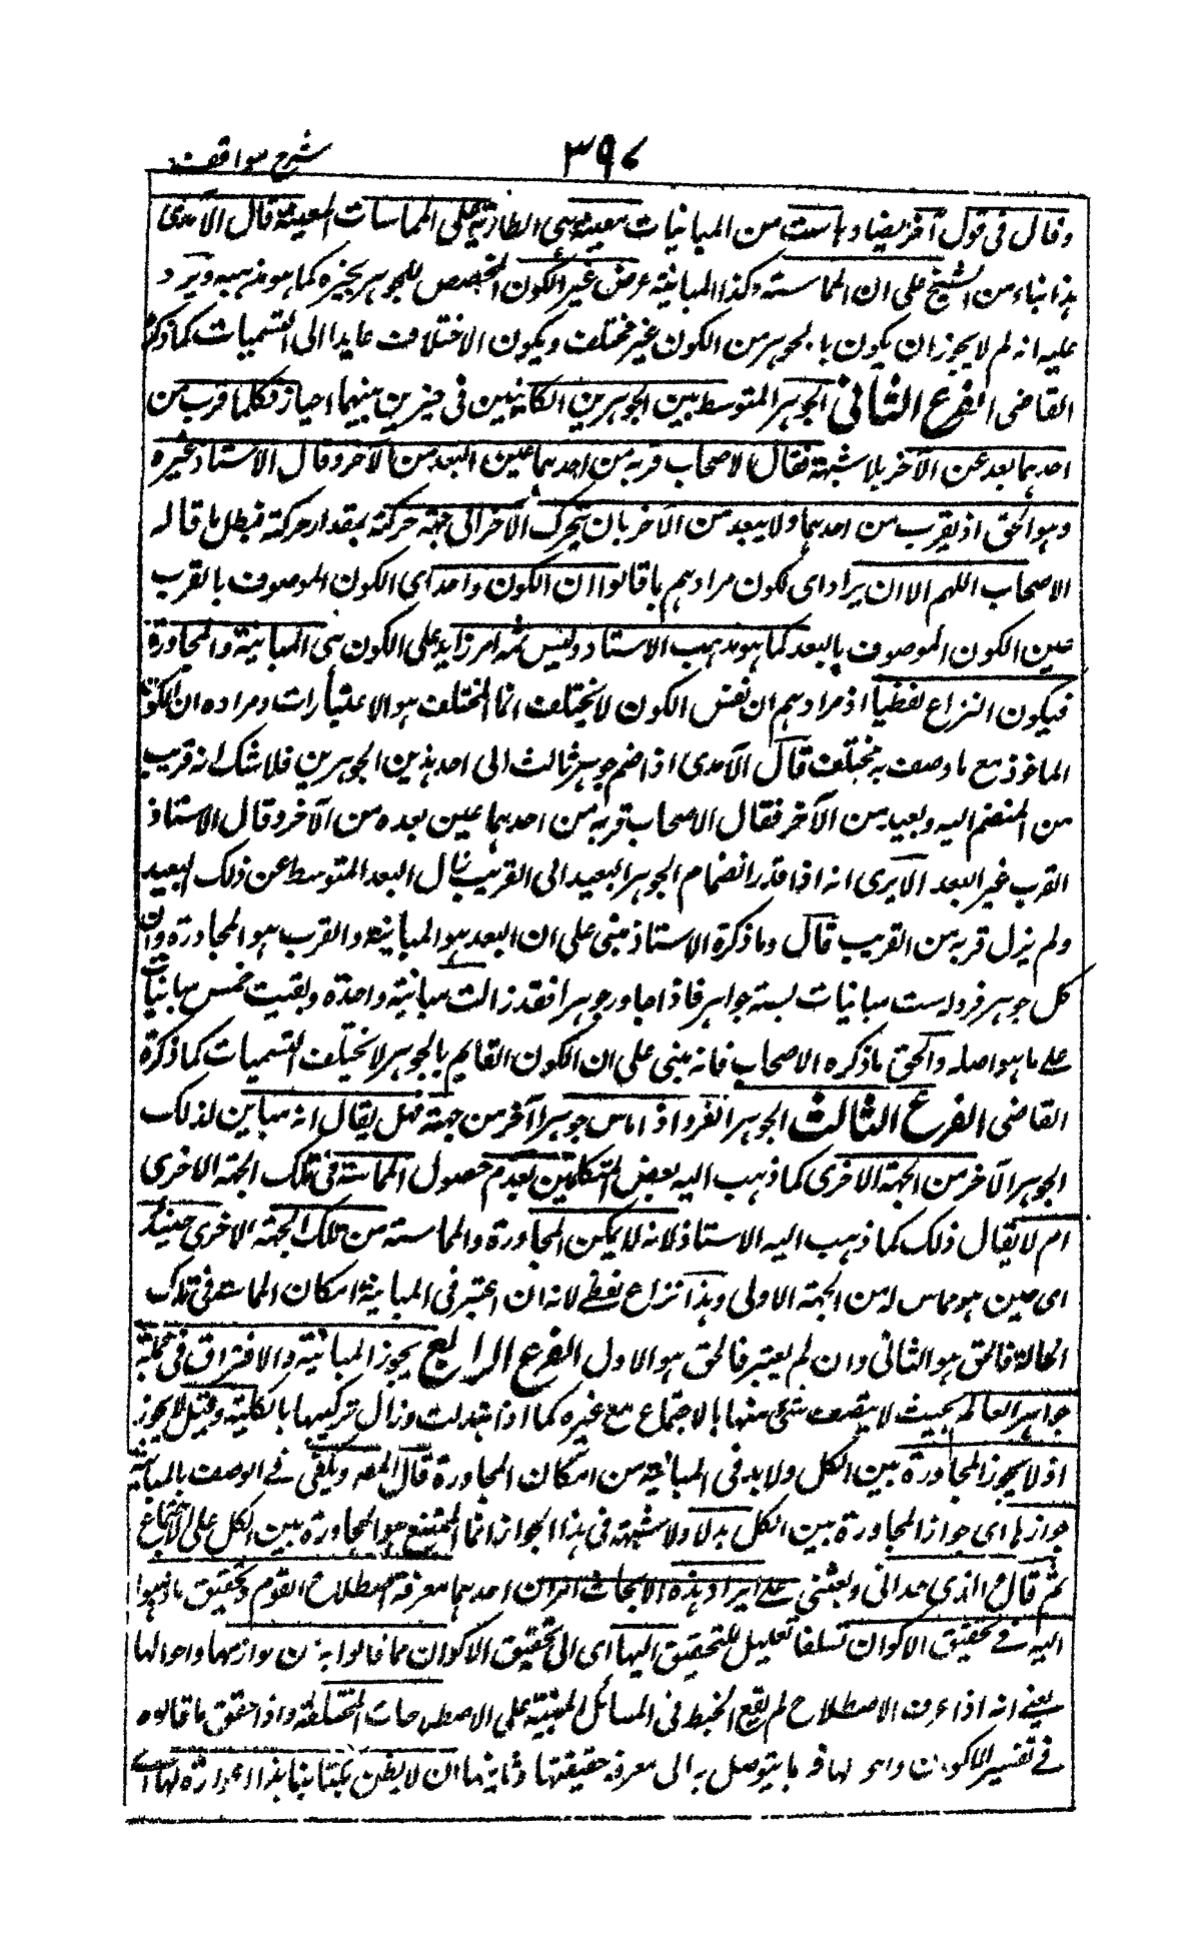 شرح مواقف
٣٩٧
وقال فى قول آخر يضادها ست من المباينات معينة هى الطارية على المماسات المعينة قال الآمدى
هذا بناء من الشيخ على ان المماسة وكذا المباينة عرض غير الكون المخصص للجوهر بحيزه كما هو مذهبه ويرد
عليه انه لم لا يجوز ان يكون بالجوهر من الكون غير مختلف ويكون الاختلاف عايدا الى التسميات كما ذكره
القاضى الفرع الثانى الجوهر المتوسط بين الجوهرين الكاينين فى حيزين بينهما احياز فكلما قرب من
احدهما بعد عن الآخر بلا شبهة فقال الاصحاب قربه من احدهما عين البعد من الآخر وقال الاستاذ غيره
وهو الحق اذ يقرب من احدهما ولا يبعد من الآخر بان يتحرك الآخر الى جهة حركته بمقدار حركته فبطل ما قاله
الاصحاب اللهم الا ان يراد اى يكون مرادهم بما قالوا ان الكون واحد اى الكون الموصوف بالقرب
عين الكون الموصوف بالبعد كما هو مذهب الاستاذ وليس ثمه امر زايد على الكون هى المباينة والمجاورة
فيكون النزاع لفظيا اذ مرادهم ان نفس الكون لا يختلف انما المختلف هو الاعتبارات ومراده ان الكون
الماخوذ مع ما وصف به مختلف قال الآمدى اذا ضم جوهر ثالث الى احد هذين الجوهرين فلا شك انه قريب
من المنضم اليه وبعيد من الآخر فقال الاصحاب قربه من احدهما عين بعده من الآخر وقال الاستاذ
القرب غير البعد الا يرى انه اذا قدر انضمام الجوهر البعيد الى القريب زال البعد المتوسط عن ذلك البعيد
ولم يزل قربه من القريب قال وما ذكرة الاستاذ مبنى على ان البعد هو المباينة والقرب هو المجاورة وان
كل جوهر فرد له ست مباينات لستة جواهر فاذا جاور جوهرا فقد زالت مباينة واحدة وبقيت خمس مباينات
على ما هو اصله والحق ما ذكره الاصحاب فانه مبنى على ان الكون القايم بالجوهر لا يختلف التسميات كما ذكرة
القاضى الفرع الثالث الجوهر الفرد اذا ماس جوهرا آخر من جهة فهل يقال انه مباين لذلك
الجوهر الآخر من الجهة الاخرى كما ذهب اليه بعض المتكلمين لعدم حصول المماسة فى تلك الجهة الاخرى
ام لا يقال ذلك كما ذهب اليه الاستاذ لانه لا يمكن المجاورة والمماسة من تلك الجهة الاخرى حينئذ
اى حين هو مماس له من الجهة الاولى وهذا نزاع لفظى لانه ان اعتبر فى المباينة امكان المماسة فى تلك
الحالة فالحق هو الثانى وان لم يعتبر فالحق هو الاول الفرع الرابع يجوز المباينة والافتراق فى جملة
جواهر العالم بحيث لا يتصف شئ منها بالاجتماع مع غيره كما اذا تبدلت وزال تركيبها بالكلية وقيل لا يجوز
اذ لا يجوز المجاورة بين الكل ولا بد فى المباينة من امكان المجاورة قال المصه ويكفى فى الوصف بالمباينة
جوازها اى جواز المجاورة بين الكل بدلا ولا شبهة فى هذا الجواز انما الممتنع هو المجاورة بين الكل على الاجتماع
ثم قال م الذى حدانى وبعثنى على ايراد هذه الابحاث امران احدهما معرفة اصطلاح القوم وتحقيق ما ذهبوا
اليه فى تحقيق الاكوان تسلقا تعليل للتحقيق اليها اى الى تحقيق الاكوان مما قالوا به من لوازمها واحوالها
يعنى انه اذا عرف الاصطلاح لم يقع الخبط فى المسائل المبنية على الاصطلاحات المختلفة واذا حقق ما قالوه
فى تفسير الاكوان واحوالها فربما يتوصل به الى معرفة حقيقتها وثانيهما ان لا يظن بكتابنا هذا اعوازه لها اى